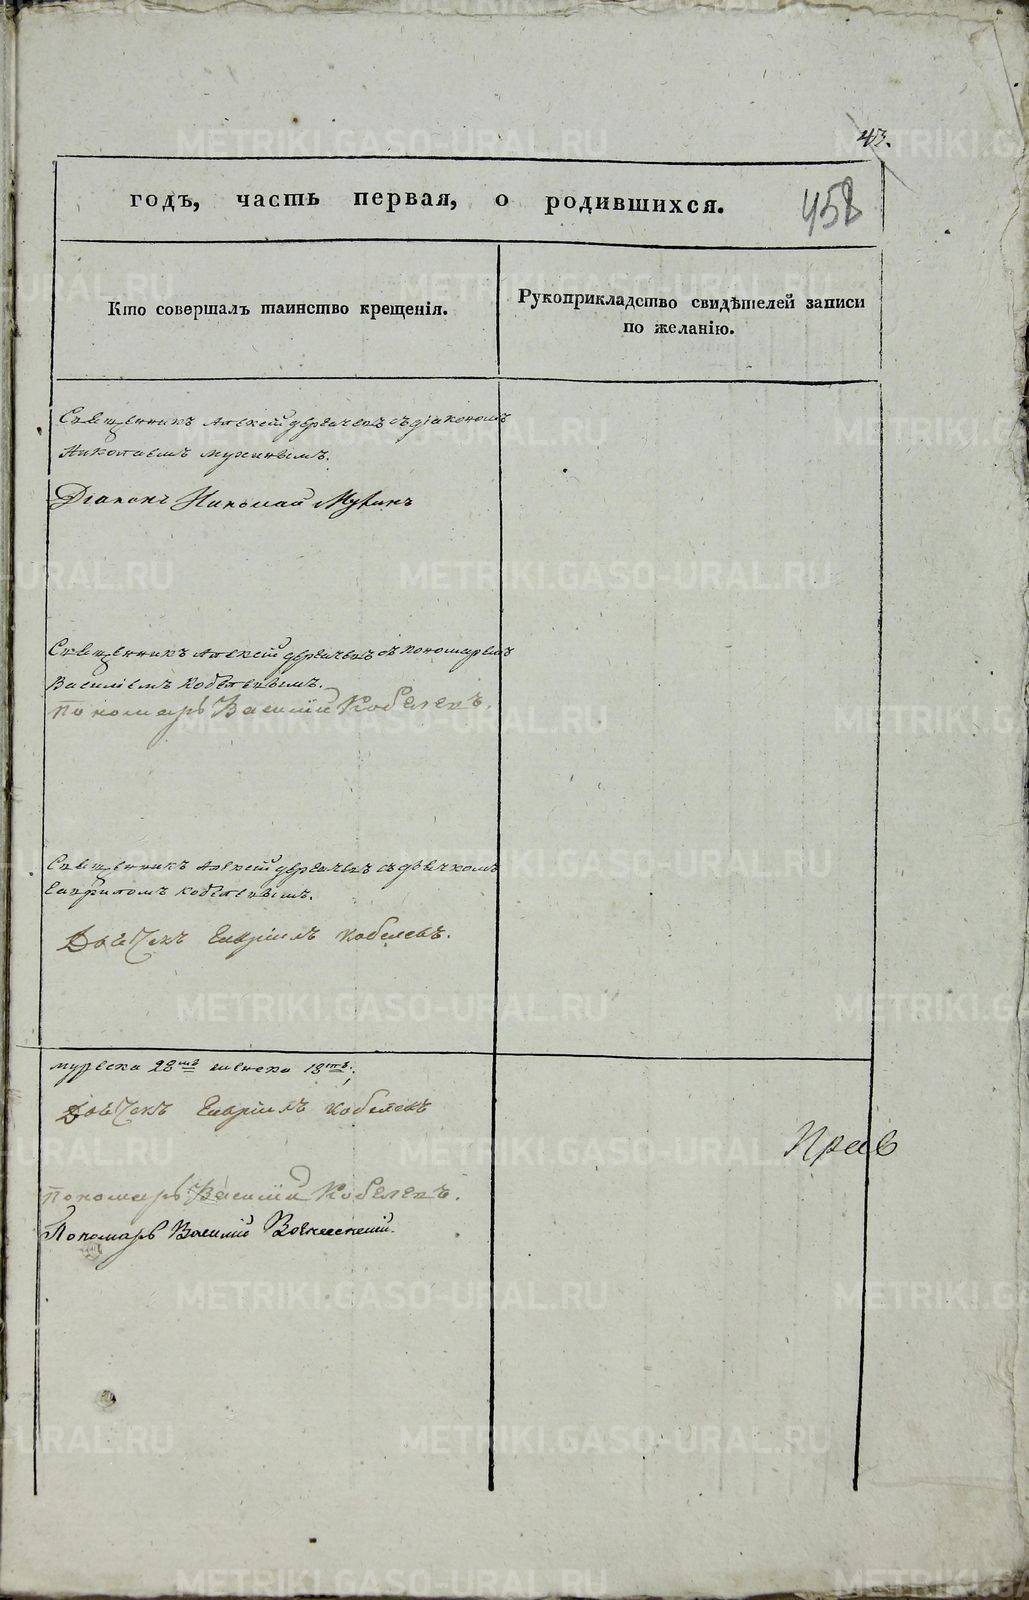 43.
годъ, часть первая, о родившихся.
458
Кто совершалъ таинство крещенія.
Рукоприкладство свидѣтелей записи
по желанію.
Священникъ Алексій съ діакономъ
Николаемъ Мухинымъ.
Діаконъ Николай Мухинъ
Священникъ Алексій съ пономаремъ
Василіемъ Кобелевымъ.
Пономарь Василій Кобелевъ.
Священникъ Алексій съ дьячкомъ
Гавріиломъ Кобелевымъ.
Дьячекъ Гавріилъ Кобелевъ.
мужеска 28 женска 18
Дьячекъ Гавріилъ Кобелевъ
Прав
Пономарь Василій Кобелевъ.
Пономарь Василій
METRIKI.GASO-URAL.RU